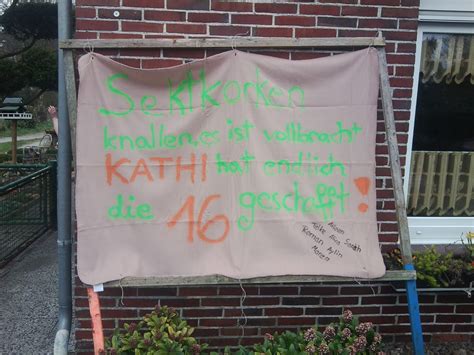 Sektkorken
knallen, es ist vollbracht
KATHI hat endlich
die 16 geschafft!
Sarah
Roman Aylin